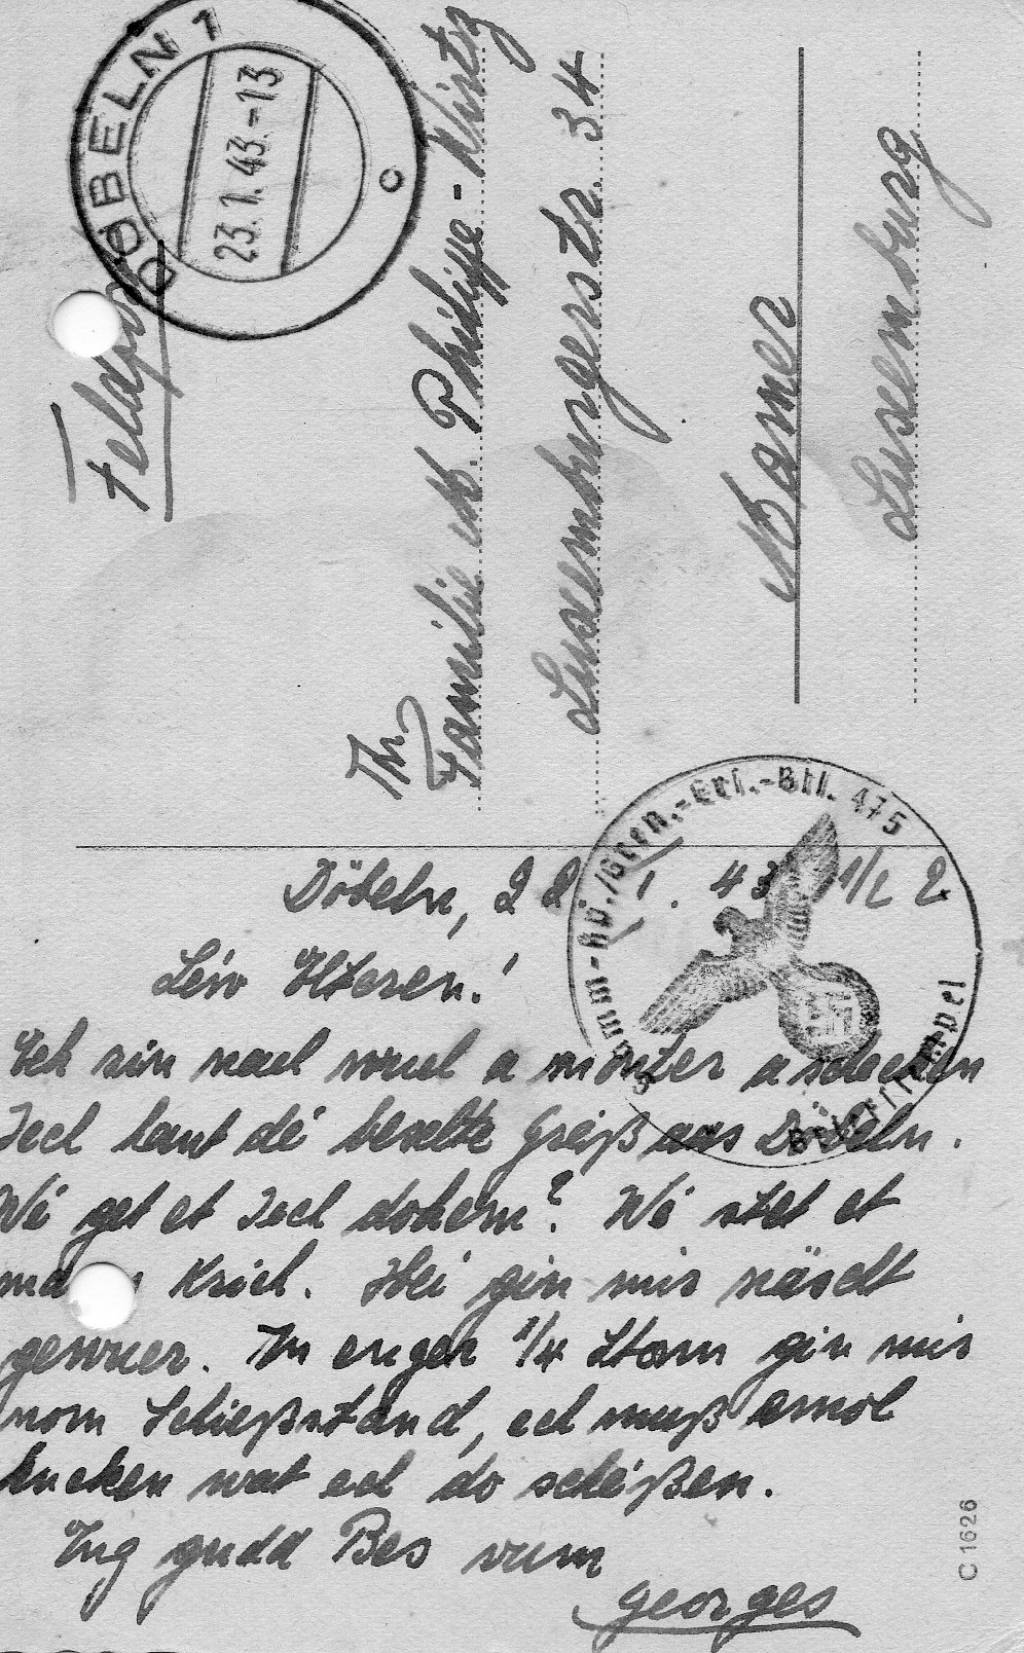 DÖBELN 1
23.1.43.-13
c
Feldpost
An
Familie M. Philippe-Wirtz
Luxemburgerstr. 34
Kamer
Luxemburg
Stamm-Kp./Gren.-Ers.-Btl. 475
Briefstempel
Döbeln, 22. 1. 43 1/2 2
Leiw Elteren!
Ech sin nach wuel a monter a schecken
Iech haut dé beschte Greiß aus Döbeln.
Wé get et Iech dohem? Wé stet et
mam Krich. Hei gin mir näscht
gewuer. An enger 1/4 Stonn gin mir
nom Schießstand, ech muß emol
kucken wat ech do schéßen.
Eng gudd Bes vum
Georges
C 1626